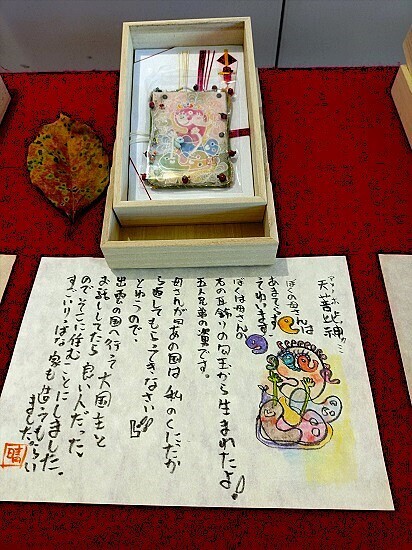 天菩比神
ぼくの母さんは
あまてらす
ってゆいます。
ぼくは母さんの
右の耳飾りの勾玉から生まれたよ♪
五人兄弟の次男です。
母さんが「あの国は私のくにだか
ら返してもらってきなさい!!」
とゆうので、
出雲の国へ行って大国主と
お話ししてたら良い人だった
のでそこに住むことにしました。
すごいりっぱな家も造ってもらい
ました。
晴